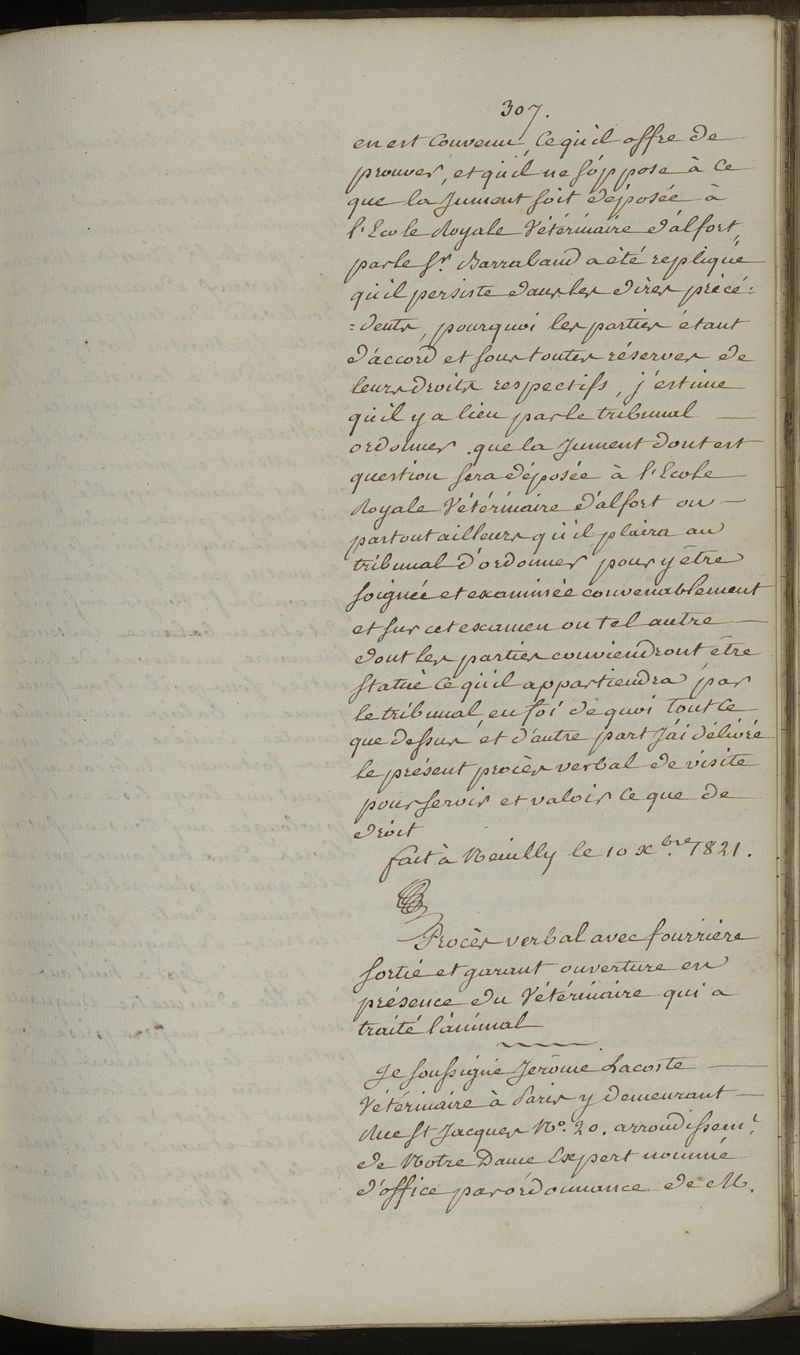 307.
en est convenu, ce qu'il offre de
prouver, et qu'il ne s'oppose à ce
que la Jument soit déposée à
l'Ecole Royale Vétérinaire d'alfort,
par le Sr. Barraband a été repliqué
qu'il persiste dans les dires précé:
:dents, pourquoi les parties étant
d'accord et sous toutes réserves de
leurs droits respectifs, j'estime
qu'il y a lieu par le tribunal —
ordonner que la Jument dont est
question sera déposée à l'Ecole
Royale Vétérinaire d'alfort ou —
partout ailleurs qu'il plaira au
tribunal d'ordonner pour y être
soignée et examinée convenablement
et sur cet examen ou tel autre —
dont les parties conviendront être
statué ce qu'il appartiendra par
le tribunal, en foi de quoi tout ce
que dessus et d'autre part J'ai délivré
le présent procès verbal de visite
pour servir et valoir ce que de
droit
fait à Neuilly le 10 Xbre. 1821.
Procès verbal avec fourrière
sortie et garant ouverture en
présence du Vétérinaire qui a
traité l'animal
Je soussigné Jerôme Lacoste —
Vétérinaire à Paris y demeurant —
Rue St Jacques No. 20. arrondissemt.
de Notre Dame Expert nommé
d'office par ordonnance de M.